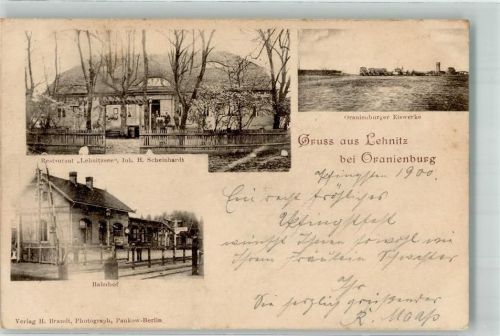 Oranienburger Eiswerke
Restaurant „Lehnitzsee", Inh. H. Scheinhardt
Gruss aus Lehnitz
bei Oranienburg
Pfingsten 1900.
Ein recht fröhliches
Pfingstfest
wünscht Ihnen sowohl wie
Ihrem Fräulein Schwester
Ihr
Sie herzlich grüßender
R. Maaß
Bahnhof
Verlag H. Brandt, Photograph, Pankow-Berlin